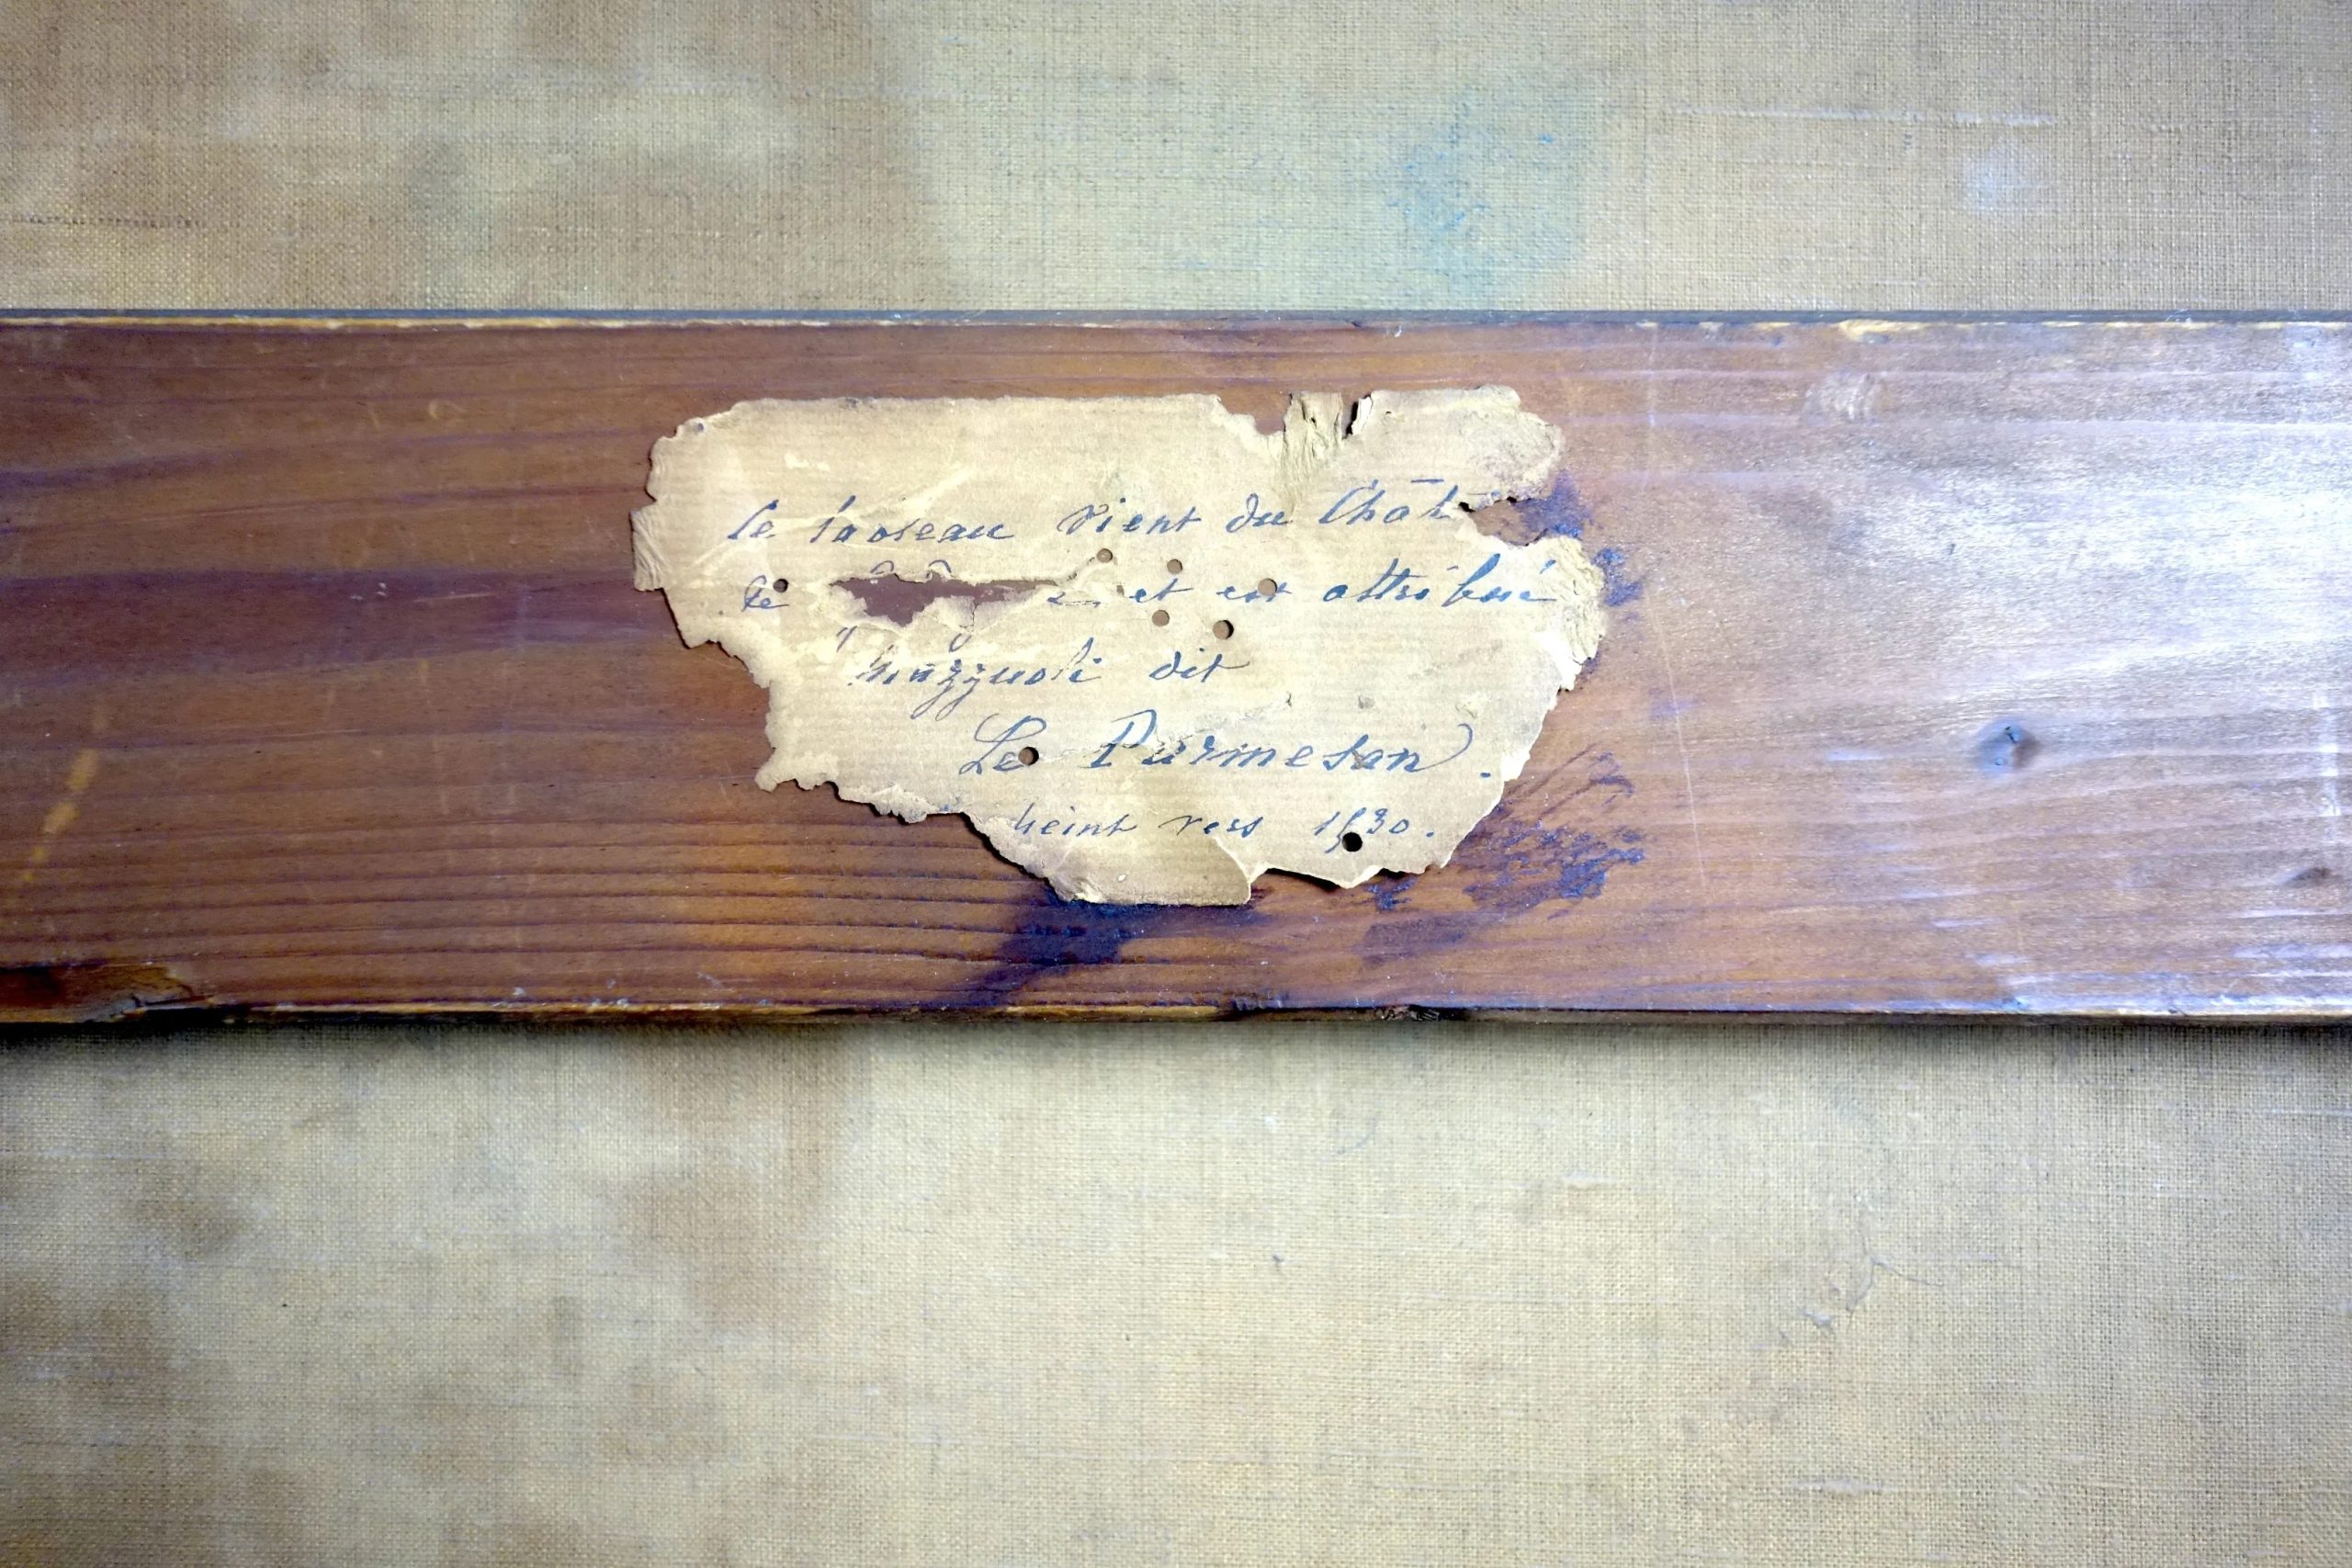 le tableau vient du Chât
de et est attribué
Mazzuoli dit
Le Parmesan.
peint vers 1530.